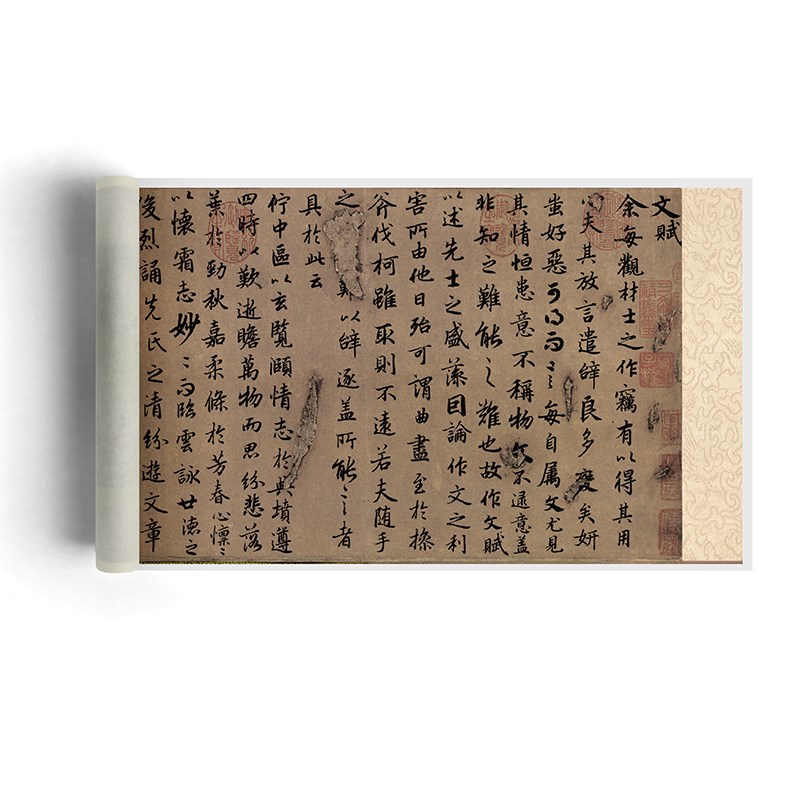 文賦
余每觀材士之作竊有以得其用
心夫其放言遣辭良多變矣妍
蚩好惡可得而言每自属文尤見
其情恒患意不稱物文不逮意蓋
非知之難能之難也故作文賦
以述先士之盛藻因論作文之利
害所由他日殆可謂曲盡至於操
斧伐柯雖取則不遠若夫随手
之難以辭逐蓋所能言者
具於此云
佇中區以玄覽頤情志於典墳遵
四時以歎逝瞻萬物而思紛悲落
葉於勁秋嘉柔條於芳春心懍〻
以懷霜志妙〻而臨雲詠世德之
俊烈誦先民之清紛遊文章